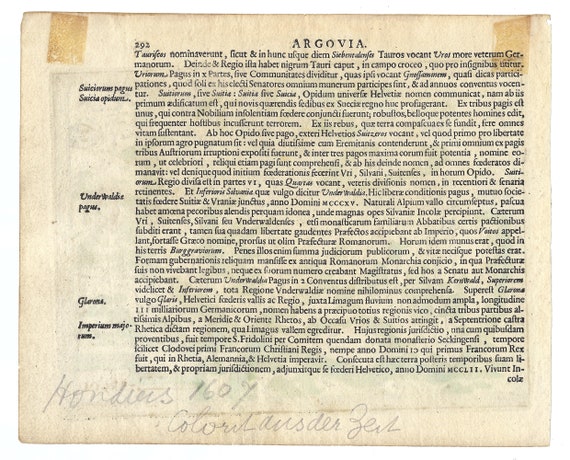 292 ARGOVIA.
Tauriscos nominaverunt, sicut & in hunc usque diem Siebentalenses Tauros vocant Uros more veterum Ger-
manorum. Deinde & Regio ista habet nigrum Tauri caput, in campo croceo, quo pro insignibus utitur.
Uriorum Pagus in X Partes, sive Communitates dividitur, quas ipsi vocant Gnossammen, quasi dicas partici-
pationes, quod soli ex his electi Senatores omnium munerum participes sint, & ad annuos conventus vocen-
Suitiorum pagus
tur. Suitiorum, sive Suitia: Suitz sive Suecia, Opidum universæ Helvetiæ nomen communicat, nam ab iis
Suecia opidum.
primum ædificatum est, qui novis quærendis sedibus ex Suecia regno huc profugerant. Ex tribus pagis est
unus, qui contra Nobilium insolentiam fœdere conjuncti fuerunt; robustos, belloque potentes homines edit,
qui frequenter hostibus incusserunt terrorem. Ex iis rebus, quæ terra compascua ex se fundit, fere omnes
vitam sustentant. Ab hoc Opido sive pago, exteri Helvetios Suitzeros vocant, vel quod primo pro libertate
in ipsorum agro pugnatum sit: vel quia diutissime cum Eremitanis contenderunt, & primi omnium ex pagis
tribus Austriorum irruptioni expositi fuerunt, & inter tres pagos maxima eorum fuit potentia, nomine eo-
rum, ut celebriori, reliqui etiam pagi sunt comprehensi, & ab his deinde nomen, ad omnes fœderatos di-
manavit: vel denique quod initium fœderationis fecerint Vri, Silvani, Suitenses, in horum Opido. Suiti-
orum Regio divisa est in partes VI, quas Quartas vocant, veteris divisionis nomen, in recentiori & senaria
Underwaldiæ
pagus.
retinentes. Et Inferiori Silvania quæ vulgo dicitur Underwaldia, Hic liberæ conditionis pagus, mutuo socie-
tatis fœdere Suitiæ & Vraniæ junctus, anno Domini MCCCXV. Naturali Alpium vallo circumseptus, pascua
habet amena pecoribus alendis perquam idonea, unde magnas opes Silvaniæ Incolæ percipiunt. Cæterum
Vri, Suitenses, Silvani seu Underwaldenses, etsi monasticarum familiarum Abbatibus certis pactionibus
subditi erant, tamen sua quadam libertate gaudentes Præfectos accipiebant ab Imperio, quos Voitos appel-
lant, fortasse Græco nomine, prorsus ut olim Præfecturæ Romanorum. Horum idem munus erat, quod in
his terris Burggraviorum. Penes illos enim summa judiciorum publicorum, & vitæ necisque potestas erat.
Formam gubernationis reliquam mansisse ex antiqua Romanorum Monarchia conjicio, in qua Præfecturæ
suis non vivebant legibus, neque ex suorum numero creabant Magistratus, sed hos a Senatu aut Monarchis
accipiebant. Cæterum Underwaldia Pagus in 2 Conventus distributus est, per Silvam Kernwald, Superiorem
videlicet & Inferiorem, tota Regione Underwaldiæ nomine nihilominus comprehensa. Superest Glarona
Glarona.
vulgo Glaris, Helvetici fœderis vallis ac Regio, juxta Limagum fluvium non admodum ampla, longitudine
III milliariorum Germanicorum, nomen habens a præcipuo totius regionis vico, cincta tribus partibus al-
tissimis Alpibus, a Meridie & Oriente Rhetos, ab Occasu Vrios & Suitios attingit, a Septentrione castra
Imperium majo-
rum.
Rhetica dictam regionem, qua Limagus vallem egreditur. Hujus regionis jurisdictio, una cum quibusdam
proventibus, fuit tempore S. Fridolini per Comitem quendam donata monasterio Seckingensi, tempore
scilicet Clodovei primi Francorum Christiani Regis, nempe anno Domini 10 qui primus Francorum Rex
fuit, qui in Rhetia, Alemannia, & Helvetia imperavit. Consecuta est hæc terra posteris temporibus suam li-
bertatem, & propriam jurisdictionem, adjunxitque se fœderi Helvetico, anno Domini MCCLII. Vivunt In-
colæ
Hondius 1607
Colorit aus der Zeit